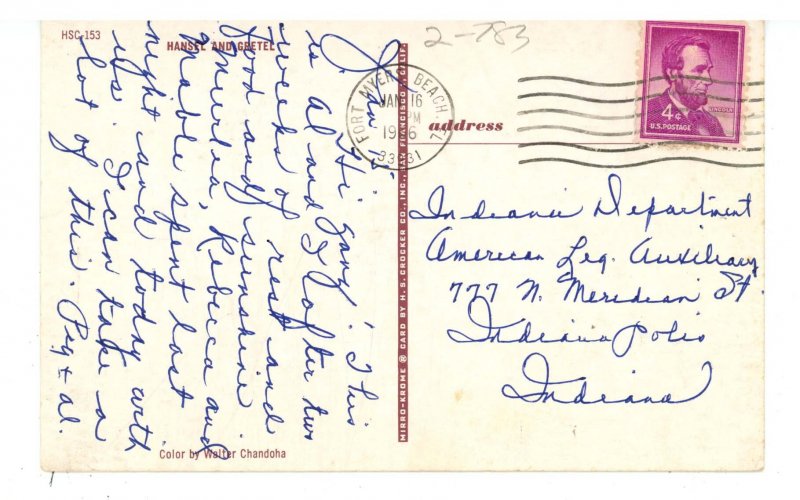 HSC-153
HANSEL AND GRETEL
2-783
Jan 15.
Hi Gang! This
is Al and I after two
weeks of rest and
food and sunshine.
Muerlea, Rebecca and
Mable spent last
night and today with
us. I can take a
lot of this. Peg + al.
Color by Walter Chandoha
MIRRO-KROME ® CARD BY H. S. CROCKER CO., INC., SAN FRANCISCO 1, CALIF.
FORT MYERS BEACH, FLA.
JAN 16
PM
1966
33931
address
4¢
LINCOLN
U.S. POSTAGE
Indiana Department
American Leg. Auxiliary
777 N. Meridian St.
Indianapolis
Indiana